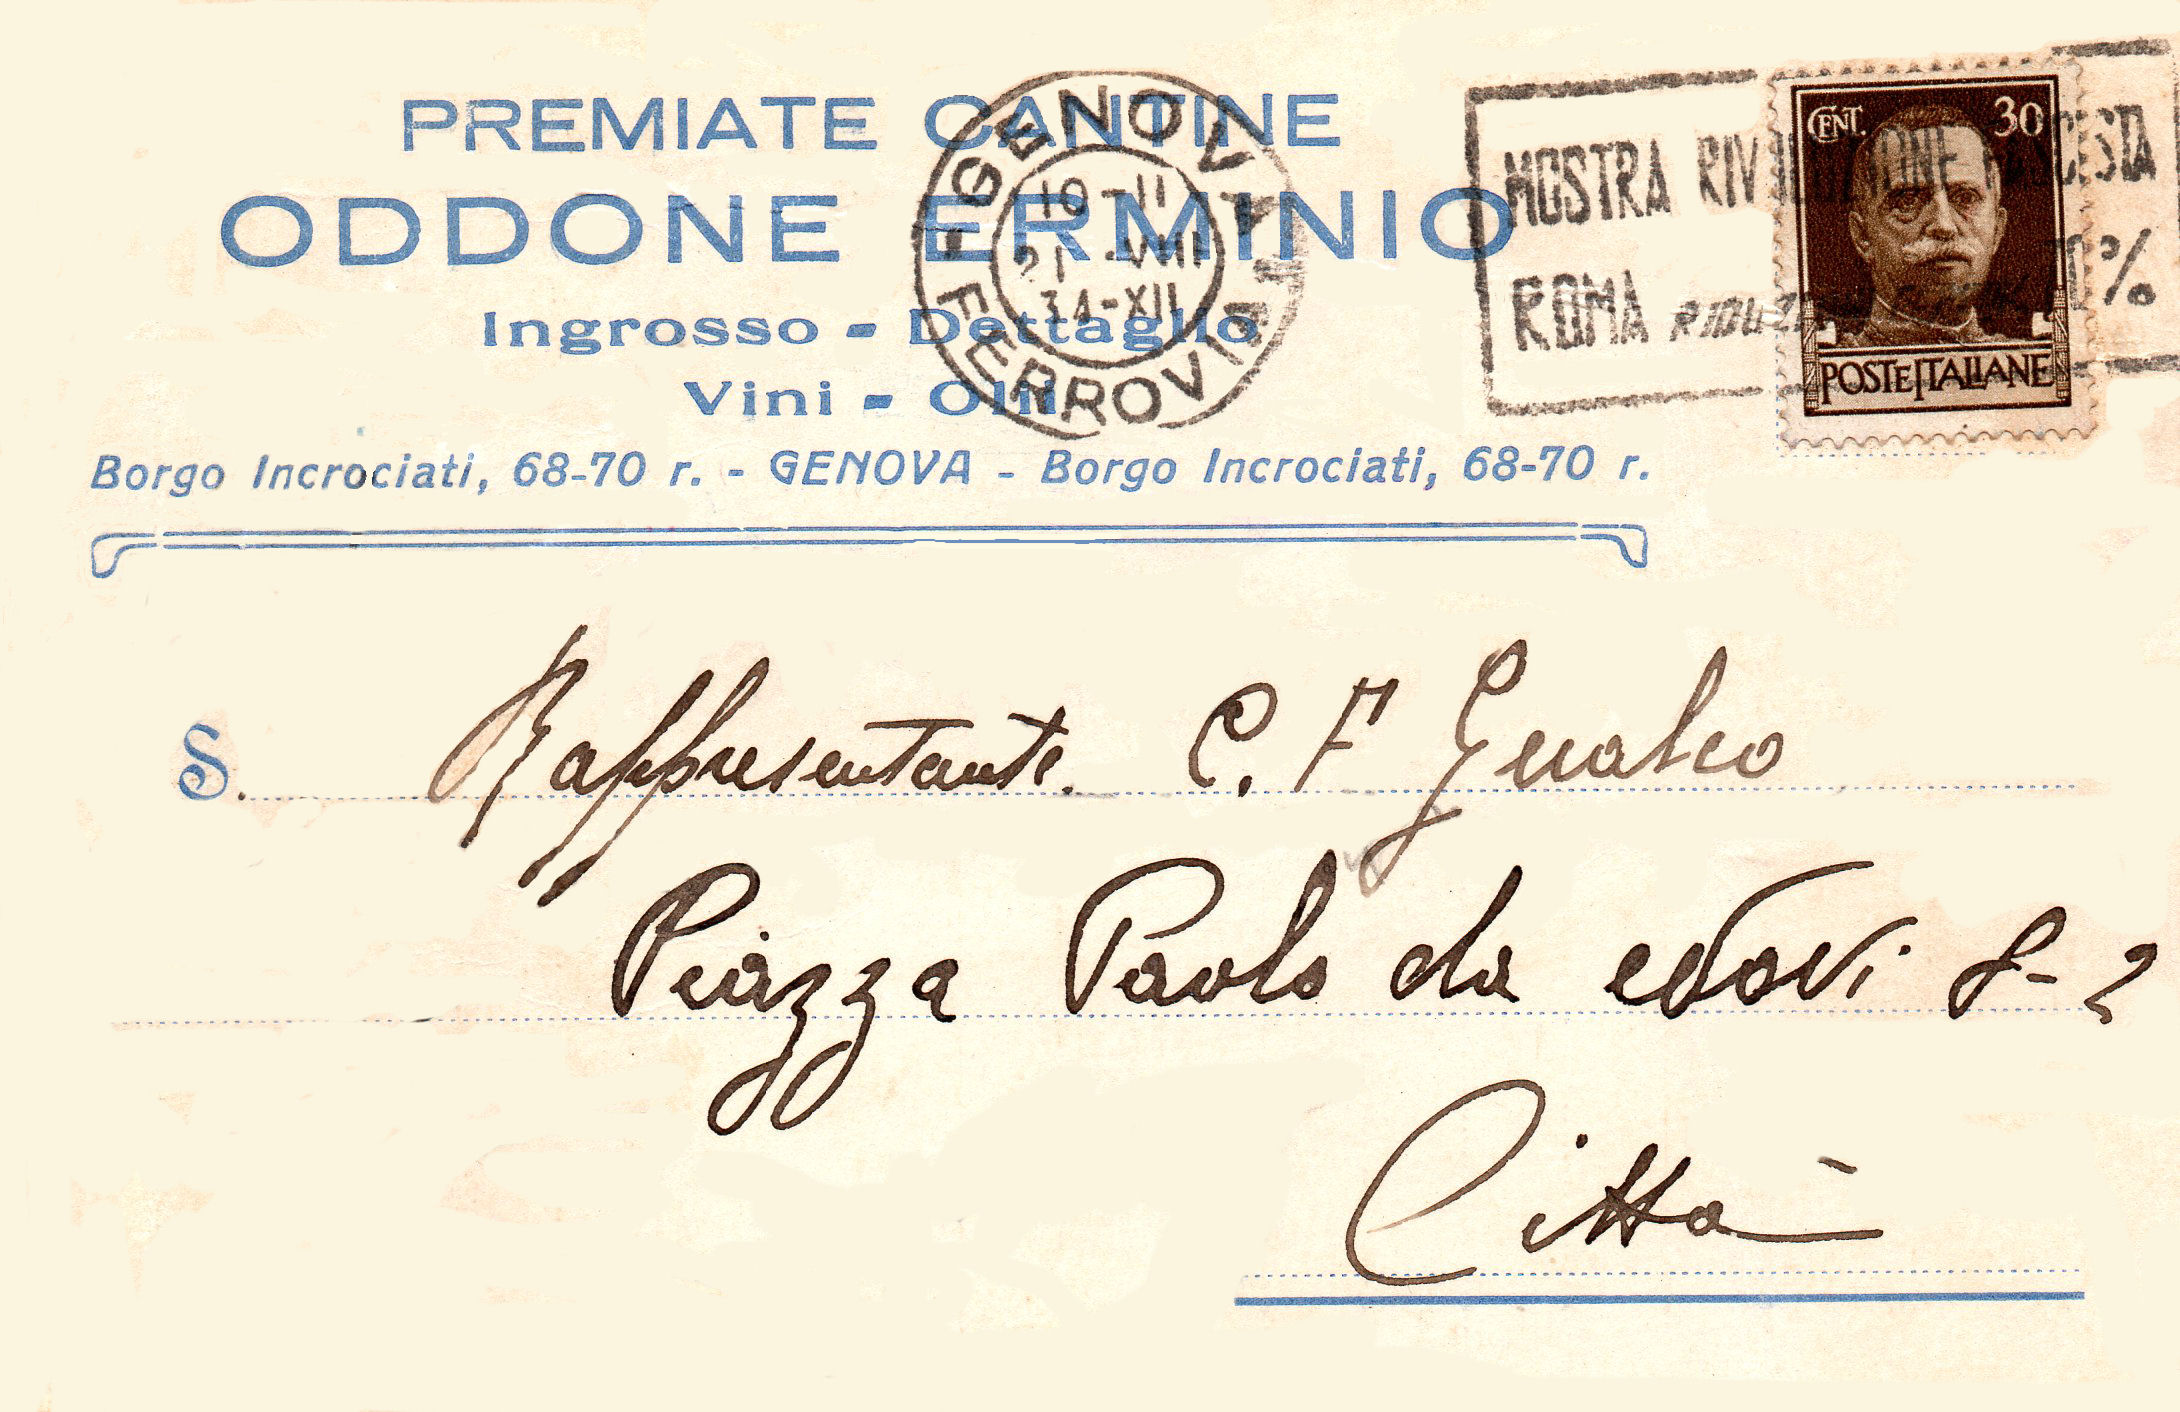 PREMIATE CANTINE
ODDONE ERMINIO
Ingrosso - Dettaglio
Vini - Olii
Borgo Incrociati, 68-70 r. - GENOVA - Borgo Incrociati, 68-70 r.
GENOVA
10-11
21 -VIII
34-XII
FERROVIA
MOSTRA RIVOLUZIONE FASCISTA
ROMA RIDUZIONI FERR. 70%
CENT. 30
POSTE ITALIANE
S. Rappresentante. C. F Gualco
Piazza Paolo da Novi 8-2
Città